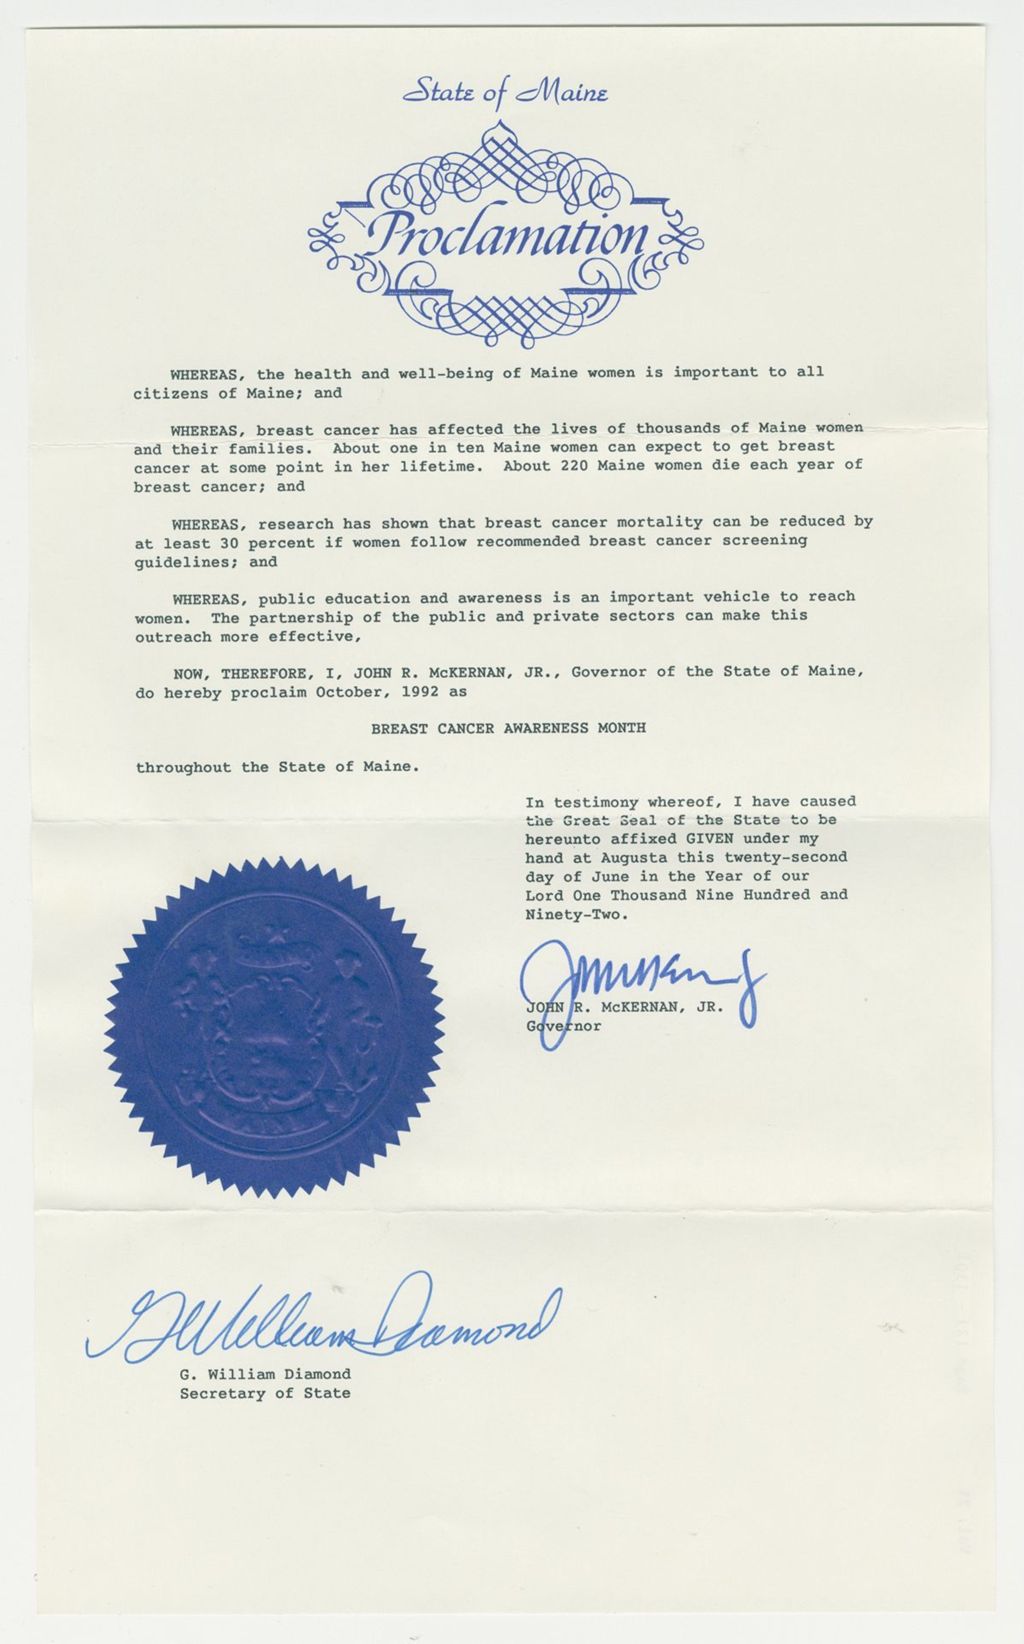 State of Maine
Proclamation
WHEREAS, the health and well-being of Maine women is important to all
citizens of Maine; and
WHEREAS, breast cancer has affected the lives of thousands of Maine women
and their families. About one in ten Maine women can expect to get breast
cancer at some point in her lifetime. About 220 Maine women die each year of
breast cancer; and
WHEREAS, research has shown that breast cancer mortality can be reduced by
at least 30 percent if women follow recommended breast cancer screening
guidelines; and
WHEREAS, public education and awareness is an important vehicle to reach
women. The partnership of the public and private sectors can make this
outreach more effective,
NOW, THEREFORE, I, JOHN R. McKERNAN, JR., Governor of the State of Maine,
do hereby proclaim October, 1992 as
BREAST CANCER AWARENESS MONTH
throughout the State of Maine.
In testimony whereof, I have caused
the Great Seal of the State to be
hereunto affixed GIVEN under my
hand at Augusta this twenty-second
day of June in the Year of our
Lord One Thousand Nine Hundred and
Ninety-Two.
JOHN R. McKERNAN, JR.
Governor
MAINE
G William Diamond
G. William Diamond
Secretary of State